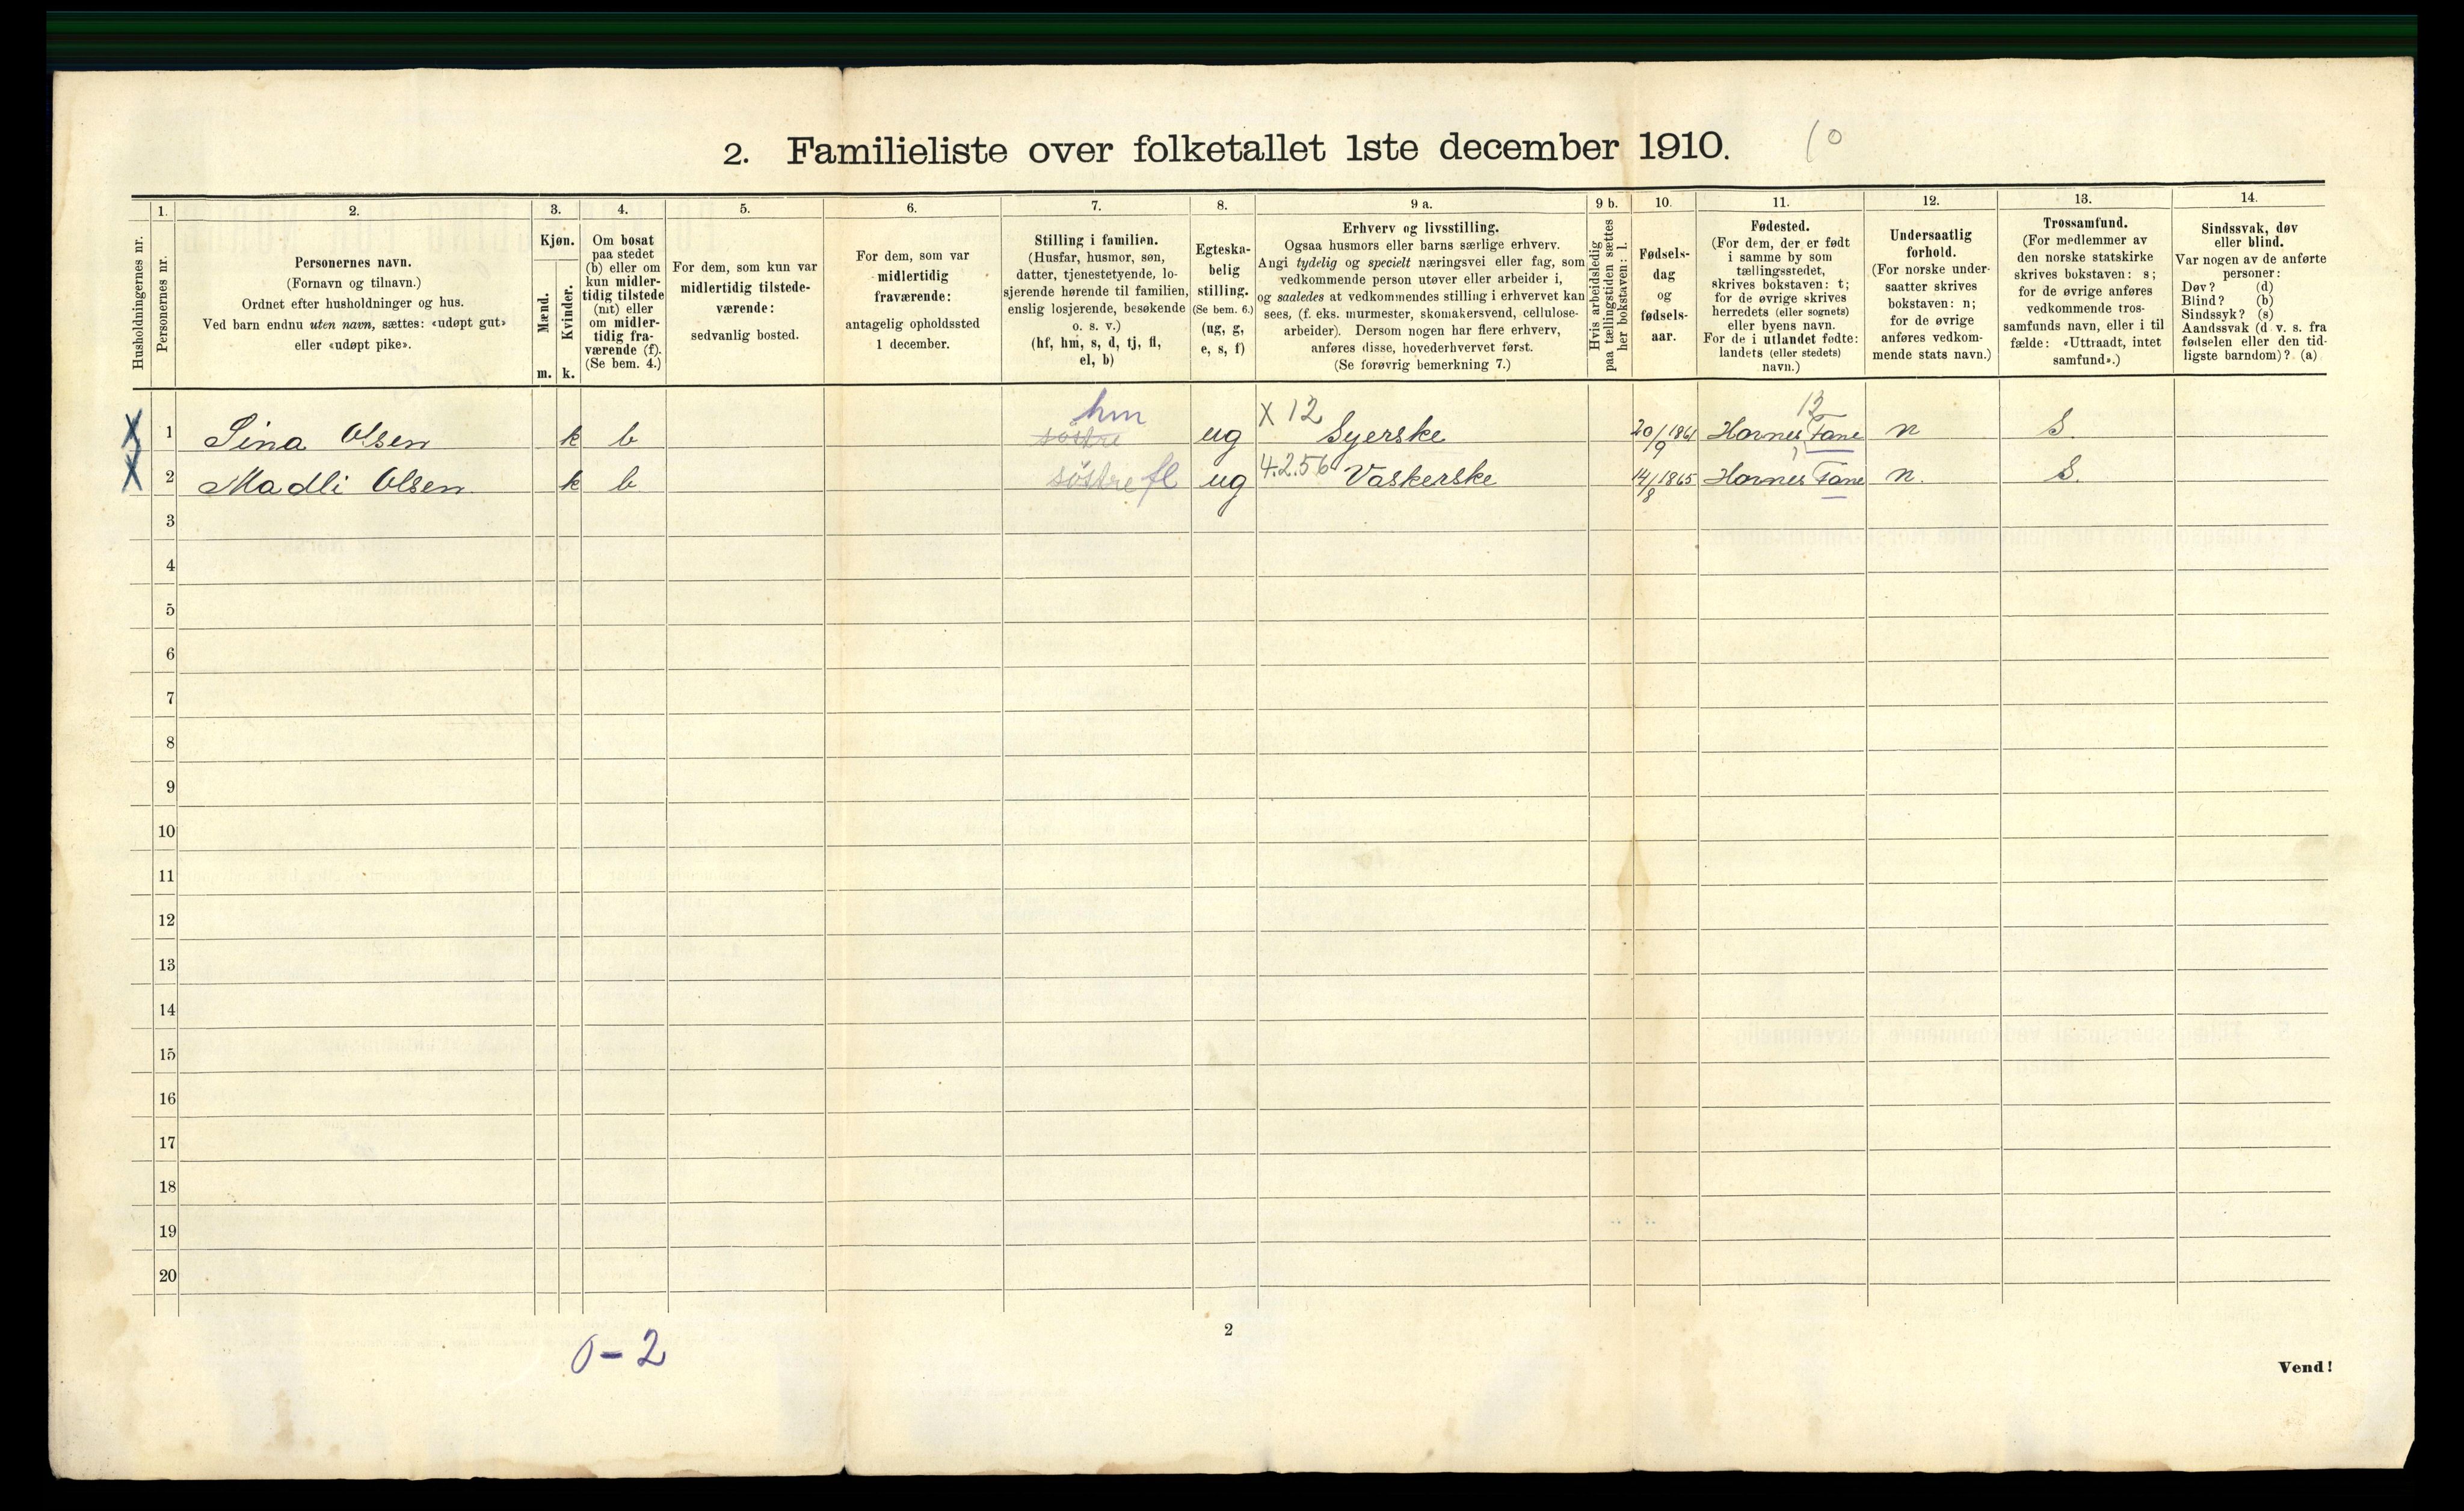 2. Familieliste over folketallet 1ste december 1910. 10
Husholdningernes nr.
1.
Personernes nr.
2.
Personernes navn.
(Fornavn og tilnavn.)
Ordnet efter husholdninger og hus.
Ved barn endnu uten navn, sættes: «udøpt gut»
eller «udøpt pike».
3.
Kjøn.
Mænd.
Kvinder.
m. k.
4.
Om bosat
paa stedet
(b) eller om
kun midler-
tidig tilstede
(mt) eller
om midler-
tidig fra-
værende (f).
(Se bem. 4.)
5.
For dem, som kun var
midlertidig tilstede-
værende:
sedvanlig bosted.
6.
For dem, som var
midlertidig
fraværende:
antagelig opholdssted
1 december.
7.
Stilling i familien.
(Husfar, husmor, søn,
datter, tjenestetyende, lo-
sjerende hørende til familien,
enslig losjerende, besøkende
o. s. v.)
(hf, hm, s, d, tj, fl,
el, b)
8.
Egteska-
belig
stilling.
(Se bem. 6.)
(ug, g,
e, s, f)
9 a.
Erhverv og livsstilling.
Ogsaa husmors eller barns særlige erhverv.
Angi tydelig og specielt næringsvei eller fag, som
vedkommende person utøver eller arbeider i,
og saaledes at vedkommendes stilling i erhvervet kan
sees, (f. eks. murmester, skomakersvend, cellulose-
arbeider). Dersom nogen har flere erhverv,
anføres disse, hovederhvervet først.
(Se forøvrig bemerkning 7.)
9 b.
Hvis arbeidsledig
paa tællingstiden sættes
her bokstaven: l.
10.
Fødsels-
dag
og
fødsels-
aar.
11.
Fødested.
(For dem, der er født
i samme by som
tællingsstedet,
skrives bokstaven: t;
for de øvrige skrives
herredets (eller sognets)
eller byens navn.
For de i utlandet fødte:
landets (eller stedets)
navn.)
12.
Undersaatlig
forhold.
(For norske under-
saatter skrives
bokstaven: n;
for de øvrige
anføres vedkom-
mende stats navn.)
13.
Trossamfund.
(For medlemmer av
den norske statskirke
skrives bokstaven: s;
for de øvrige anføres
vedkommende tros-
samfunds navn, eller i til
fælde: «Uttraadt, intet
samfund».)
14.
Sindssvak, døv
eller blind.
Var nogen av de anførte
personer:
Døv? (d)
Blind? (b)
Sindssyk? (s)
Aandssvak (d. v. s. fra
fødselen eller den tid-
ligste barndom)? (a)
hm X 12 12
X 1 Sina Olsen k b søstre ug Syerske 20/9 1861 Havnes, Fane n S.
X 2 Madli Olsen k b søstre fl ug 4.2.56 Vaskerske 14/8 1865 Havnes Fane n. S.
3
4
5
6
7
8
9
10
11
12
13
14
15
16
17
18
19
20
0-2
2
Vend!